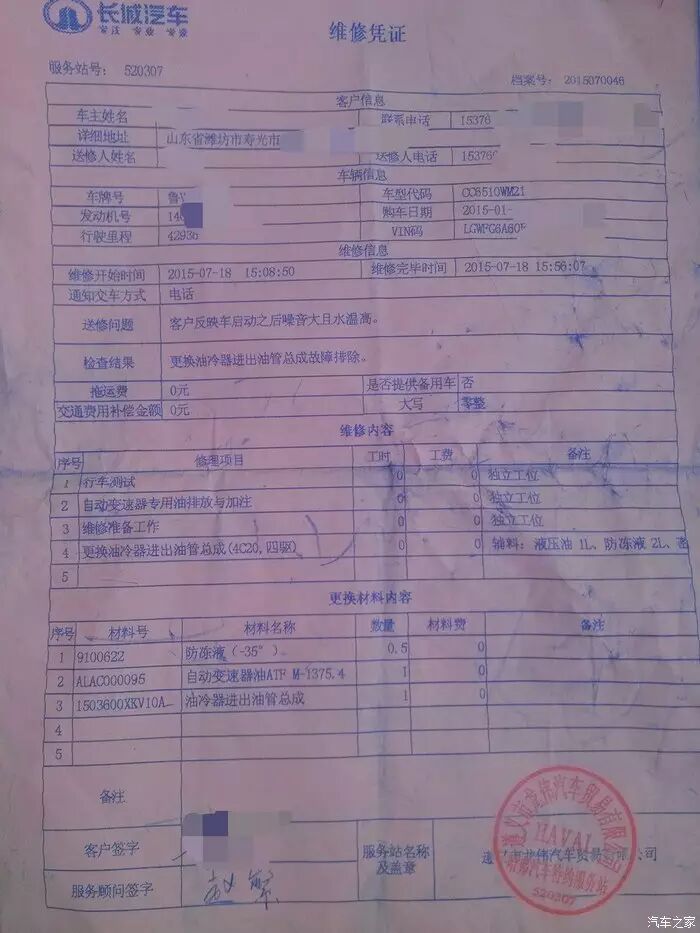 长城汽车
维修凭证
服务站号: 520307
档案号: 2015070046
客户信息
车主姓名 联系电话 15376
详细地址 山东省潍坊市寿光市
送修人姓名 送修人电话 15376
车辆信息
车牌号 鲁 车型代码 CC6510WM21
发动机号 14 购车日期 2015-01-
行驶里程 4293 VIN码 LGWFG6A60
维修信息
维修开始时间 2015-07-18 15:08:50 维修完毕时间 2015-07-18 15:56:07
通知交车方式 电话
送修问题 客户反映车启动之后噪音大且水温高。
检查结果 更换油冷器进出油管总成故障排除。
拖运费 0元 是否提供备用车 否
交通费用补偿金额 0元 大写 零整
维修内容
序号 修理项目 工时 工费 备注
1 行车测试 0 0 独立工位
2 自动变速器专用油排放与加注 0 0 独立工位
3 维修准备工作 0 0 独立工位
4 更换油冷器进出油管总成(4C20,四驱) 0 0 辅料: 液压油 1L、防冻液 2L、
5
更换材料内容
序号 材料号 材料名称 数量 材料费 备注
1 9100622 防冻液（-35°） 0.5 0
2 ALAC000095 自动变速器油ATF M-1375.4 1 0
3 1503600XKV10A 油冷器进出油管总成 1 0
4
5
备注
客户签字 服务站名称及盖章 汽车贸易有限公司
服务顾问签字
HAVAL
520307
汽车之家